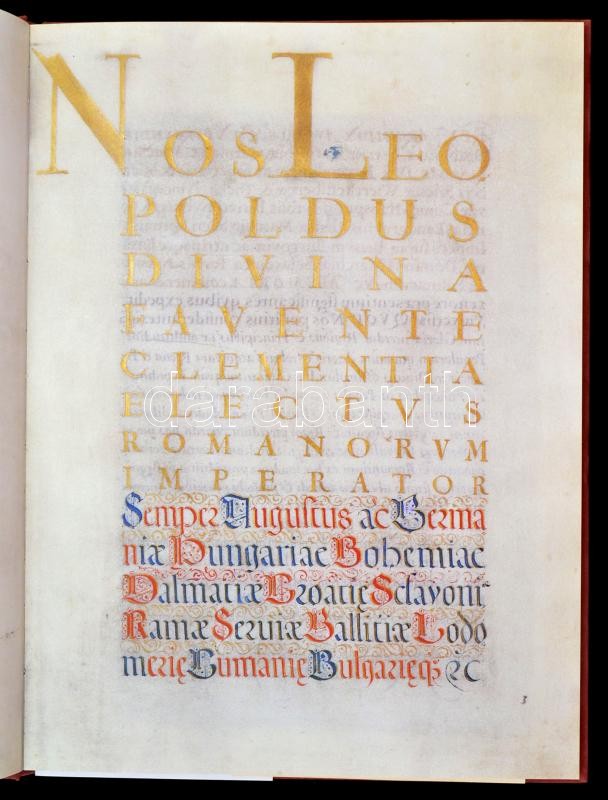 NOS LEO
POLDUS
DIVINA
FAVENTE
CLEMENTIA
ELECTVS
ROMANORVM
IMPERATOR
Semper Augustus ac Germa
niæ Hungariae Bohemiae
Dalmatiæ Croatię Sclavonię
Ramæ Serviæ Gallitiæ Lodo
merię Cumanię Bulgarięqꝫ &C
3
darabanth